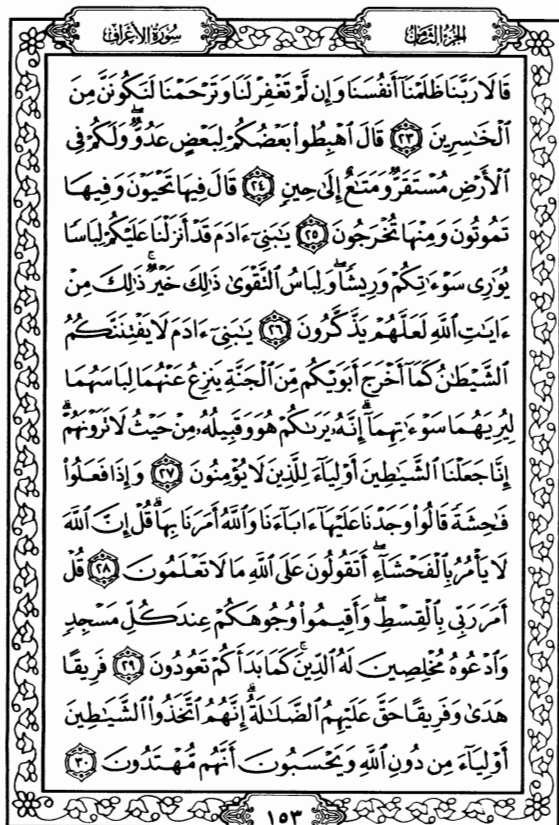 سُورَةُ الأَعْرَافِ
الجُزْءُ الثَّامِنُ
قَالَا رَبَّنَا ظَلَمْنَآ أَنفُسَنَا وَإِن لَّمْ تَغْفِرْ لَنَا وَتَرْحَمْنَا لَنَكُونَنَّ مِنَ
ٱلْخَٰسِرِينَ ٢٣ قَالَ ٱهْبِطُوا۟ بَعْضُكُمْ لِبَعْضٍ عَدُوٌّۖ وَلَكُمْ فِى
ٱلْأَرْضِ مُسْتَقَرٌّ وَمَتَٰعٌ إِلَىٰ حِينٍ ٢٤ قَالَ فِيهَا تَحْيَوْنَ وَفِيهَا
تَمُوتُونَ وَمِنْهَا تُخْرَجُونَ ٢٥ يَٰبَنِىٓ ءَادَمَ قَدْ أَنزَلْنَا عَلَيْكُمْ لِبَاسًا
يُوَٰرِى سَوْءَٰتِكُمْ وَرِيشًاۖ وَلِبَاسُ ٱلتَّقْوَىٰ ذَٰلِكَ خَيْرٌۚ ذَٰلِكَ مِنْ
ءَايَٰتِ ٱللَّهِ لَعَلَّهُمْ يَذَّكَّرُونَ ٢٦ يَٰبَنِىٓ ءَادَمَ لَا يَفْتِنَنَّكُمُ
ٱلشَّيْطَٰنُ كَمَآ أَخْرَجَ أَبَوَيْكُم مِّنَ ٱلْجَنَّةِ يَنزِعُ عَنْهُمَا لِبَاسَهُمَا
لِيُرِيَهُمَا سَوْءَٰتِهِمَآۗ إِنَّهُۥ يَرَىٰكُمْ هُوَ وَقَبِيلُهُۥ مِنْ حَيْثُ لَا تَرَوْنَهُمْۗ
إِنَّا جَعَلْنَا ٱلشَّيَٰطِينَ أَوْلِيَآءَ لِلَّذِينَ لَا يُؤْمِنُونَ ٢٧ وَإِذَا فَعَلُوا۟
فَٰحِشَةً قَالُوا۟ وَجَدْنَا عَلَيْهَآ ءَابَآءَنَا وَٱللَّهُ أَمَرَنَا بِهَاۗ قُلْ إِنَّ ٱللَّهَ
لَا يَأْمُرُ بِٱلْفَحْشَآءِۖ أَتَقُولُونَ عَلَى ٱللَّهِ مَا لَا تَعْلَمُونَ ٢٨ قُلْ
أَمَرَ رَبِّى بِٱلْقِسْطِۖ وَأَقِيمُوا۟ وُجُوهَكُمْ عِندَ كُلِّ مَسْجِدٍ
وَٱدْعُوهُ مُخْلِصِينَ لَهُ ٱلدِّينَۚ كَمَا بَدَأَكُمْ تَعُودُونَ ٢٩ فَرِيقًا
هَدَىٰ وَفَرِيقًا حَقَّ عَلَيْهِمُ ٱلضَّلَٰلَةُۗ إِنَّهُمُ ٱتَّخَذُوا۟ ٱلشَّيَٰطِينَ
أَوْلِيَآءَ مِن دُونِ ٱللَّهِ وَيَحْسَبُونَ أَنَّهُم مُّهْتَدُونَ ٣٠
١٥٣